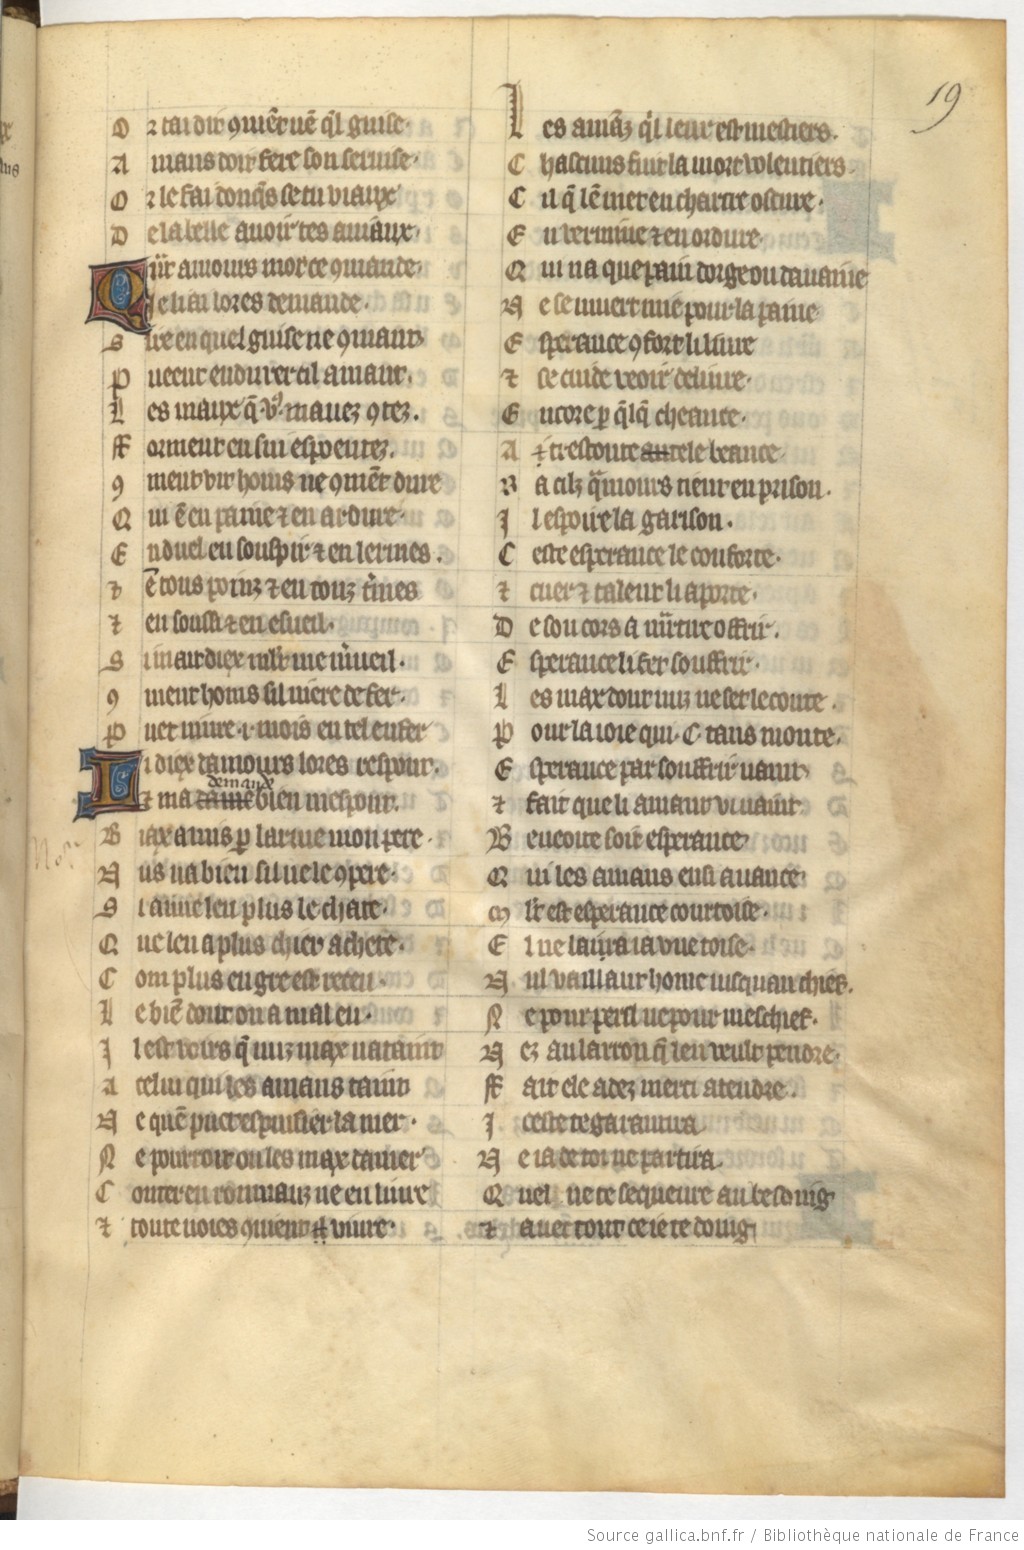 19
O r tai dit ꝯmẽt uẽ q̃l guise.
A mans doit fere son seruise.
O r le fai donq̃s se tu viaux
D e la bele auoir tes auiaux.
Q ãt amours mot ce ꝯmande.
J e li ai lores demande.
S ire en quel guise ne ꝯmant
P ueent endurer cil amant.
L es maux q̃ vꝰ mauez ꝯtez.
F orment en sui espoentez.
ꝯ ment vit homs ne ꝯmẽt dure
Q ui ẽ en paine ⁊ en ardure.
E n duel en souspir ⁊ en lermes.
⁊ ẽ tous poinz ⁊ en touz t̃mes
⁊ en soussi ⁊ en esueil.
S i mait diex mlt me m̃ueil.
ꝯ ment homs sil niere de fer.
P uet uiure .i. mois en tel enfer
L i diex damours lores respont.
⁊ ma dame demande bien mespont.
B iax amis ꝑ lame mon pere.
N us na bien sil ne le ꝯpere.
S i aime len plus le chate.
Q ue len a plus chier achete.
C om plus en gre est receu.
L e biẽ dont on a mal eu.
J l est voirs q̃ nuz max nataint
A celui qui les amans taint
N e quẽ puet espuisier la mer.
N e pourroit on les max damer
C onter en roumanz ne en liure
⁊ toute uoies ꝯuient il viure.
L es amãz q̃l leur est mestiers.
C hascuns fuit la mort volentiers.
C il q̃ lẽ met en chartre oscure.
E n vermine ⁊ en ordure.
Q ui na que pain dorge ou dauaine
N e se muert mie pour la paine
E sperance ꝯfort li liure
⁊ se cuide veoir deliure.
E ncore ꝑ q̃lq̃ cheance.
A ⁊ trestoute au tele beance
N a cilz q̃mours tient en prison.
J l espoire la garison.
C este esperance le conforte.
⁊ cuer ⁊ talent li aporte.
D e son cors a mr̃tire offrir.
E sperance li fet souffrir.
L es max dont nuz ne set le conte.
P our la ioie qui .C. tans monte.
E sperance par souffrir vaint
⁊ fait que li amant viuaint
B eneoite soit esperance
Q ui les amans ensi auance.
M lt est esperance courtoise.
E l ne laira ia vne toise.
N ul vaillant home iusquau chief.
N e pour peril ne pour meschief.
N ez au larron q̃ len veult pendre.
F ait ele adez merci atendre.
J ceste te garantira
N e ia de toi ne partira.
Q uel ne te sequeure au besoing
⁊ auec tout ce ie te doing
Source gallica.bnf.fr / Bibliothèque nationale de France